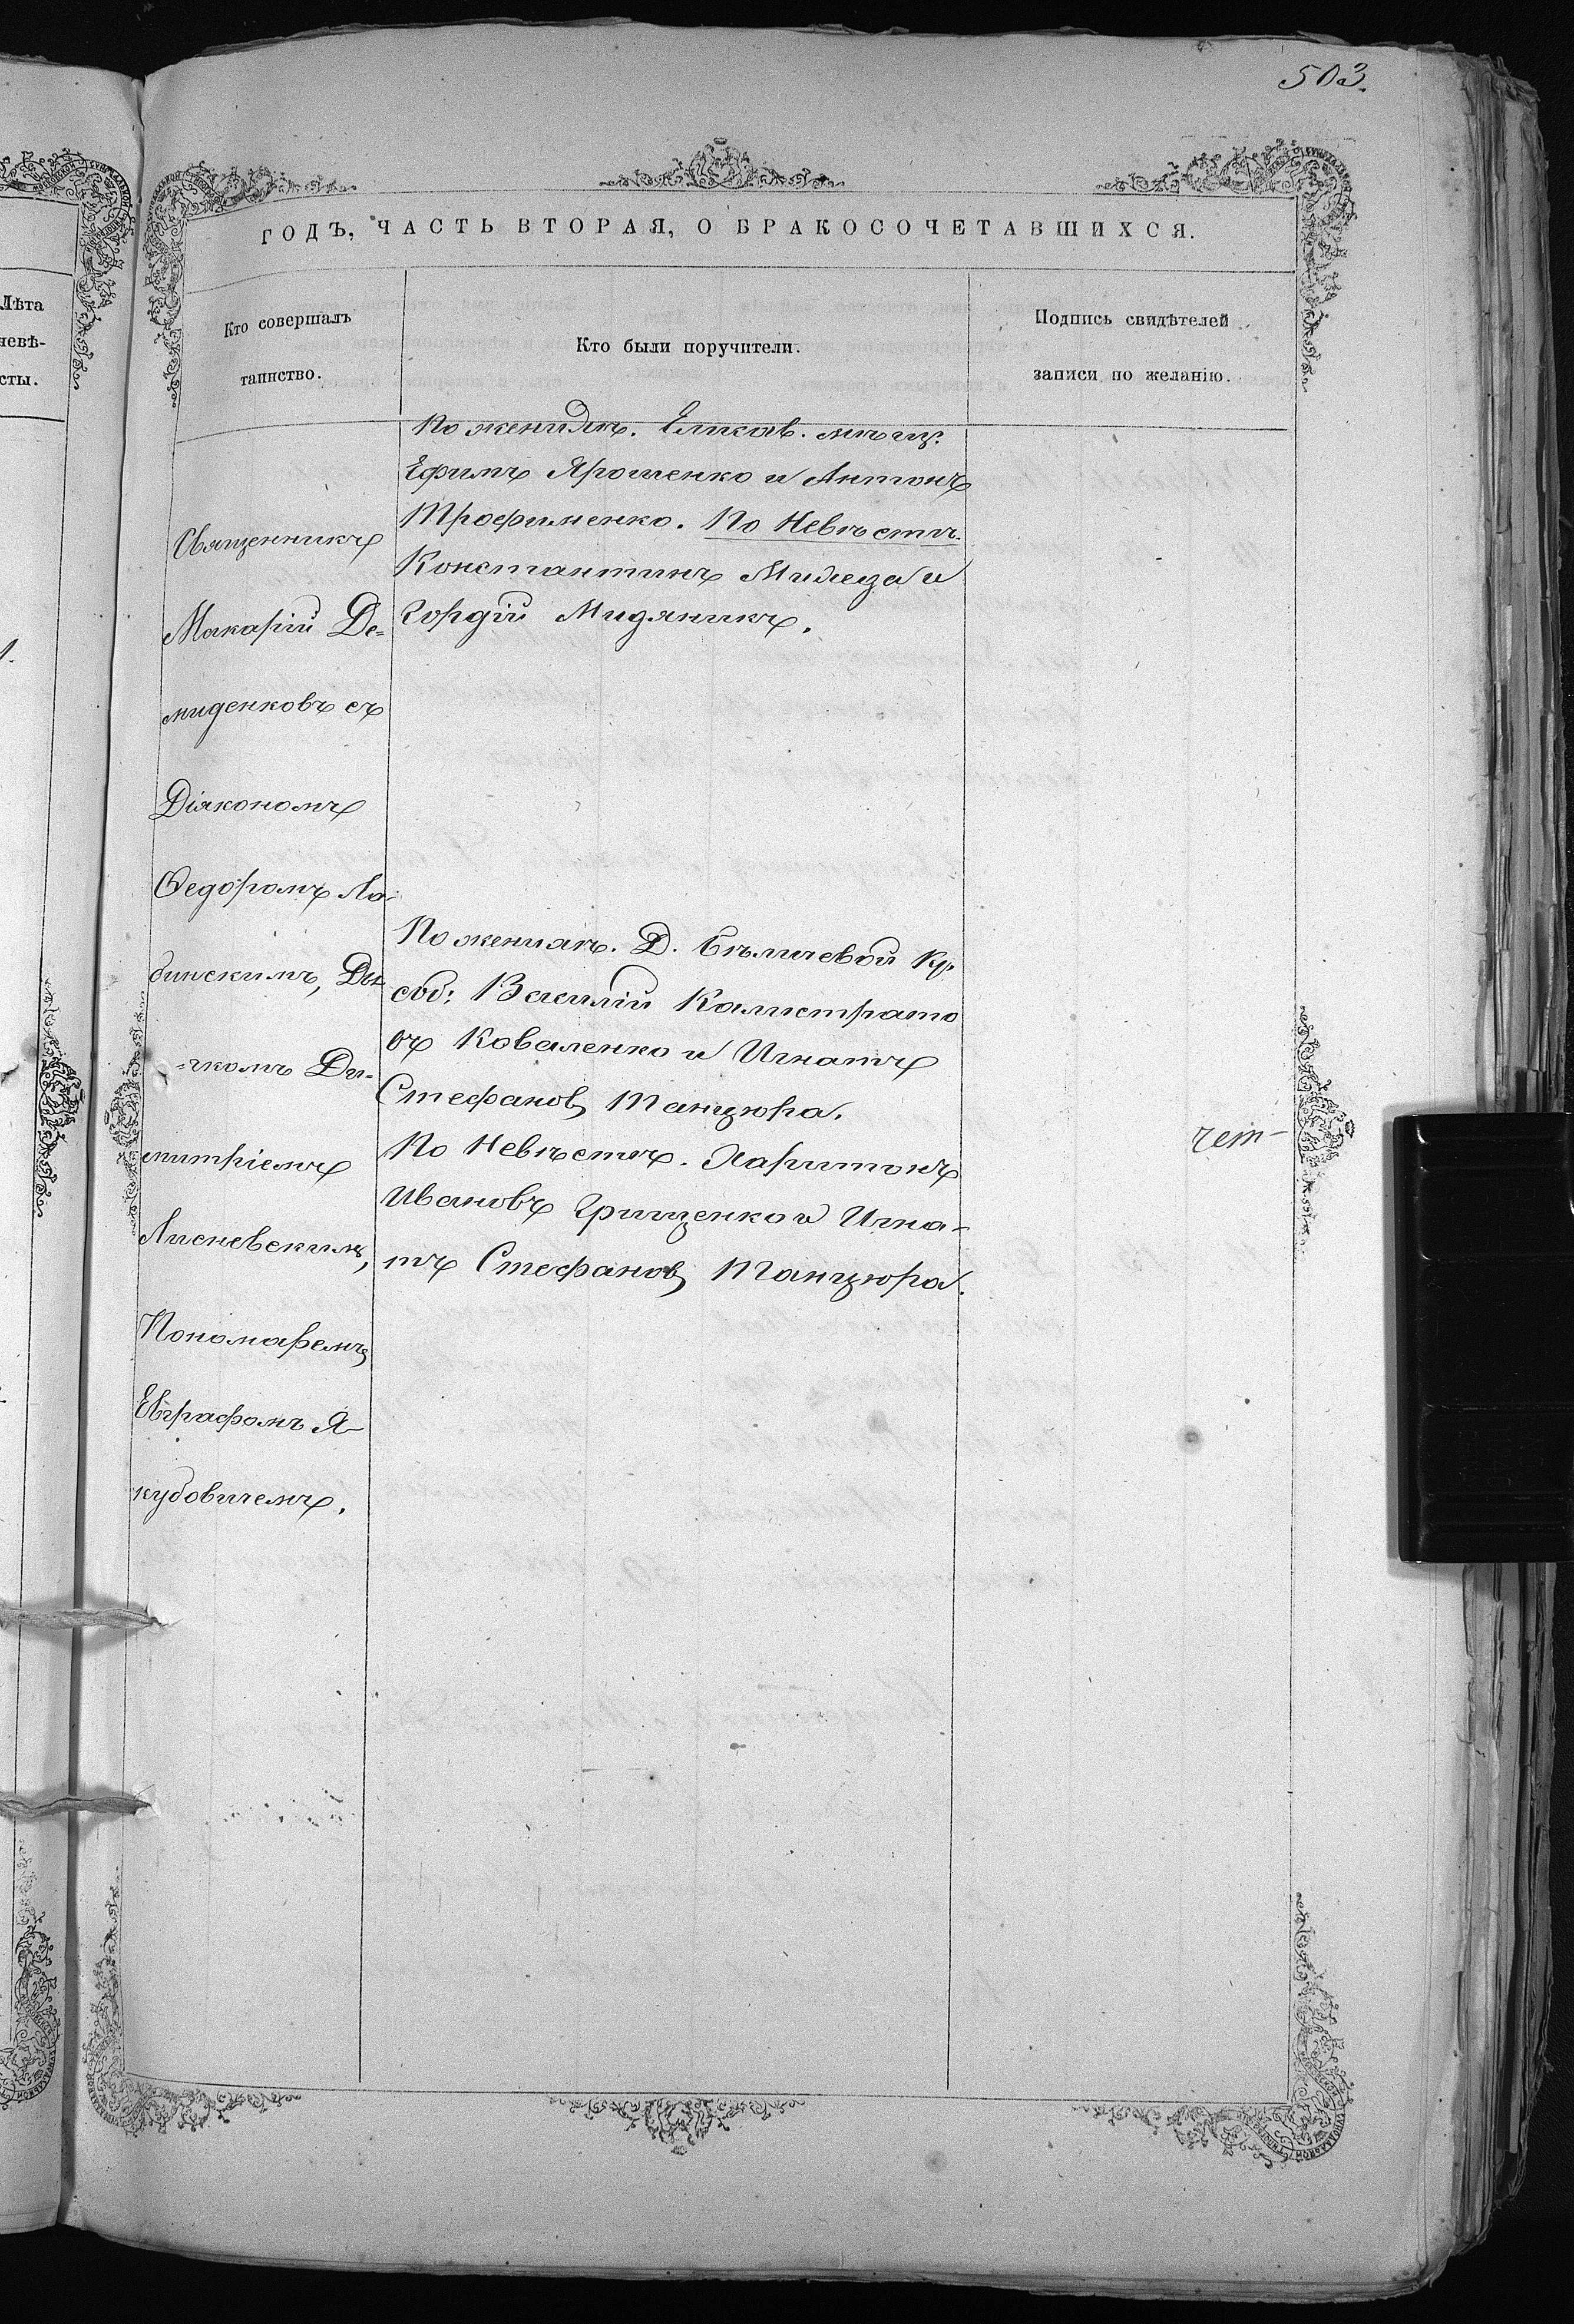 503.
ГОДЪ, ЧАСТЬ ВТОРАЯ, О БРАКОСОЧЕТАВШИХСЯ.
Лѣта
невѣ-
сты.
Кто совершалъ
таинство.
Кто были поручители.
Подпись свидѣтелей
записи по желанію.
Священникъ
Макарій Де=
миденковъ съ
Діякономъ
Ѳедоромъ Ло-
бинскимъ, Дья
=чкомъ Ди-
митріемъ
Лисневскимъ,
Пономаремъ
Евграфомъ Я-
кубовичемъ.
По жениху. Елисав. мѣщ.
Ефимъ Ярошенко и Антонъ
Трофименко. По Невѣстѣ.
Константинъ Миленза и
Гордій Мидяникъ.
По женихѣ. Д. Бѣличевой Кр.
соб: Василій Калистрато
въ Коваленко и Игнатъ
Стефановъ Танцюра.
По Невѣстѣ. Харитонъ
Ивановъ Грищенко и Игна-
тъ Стефановъ Танцюра.
чет-